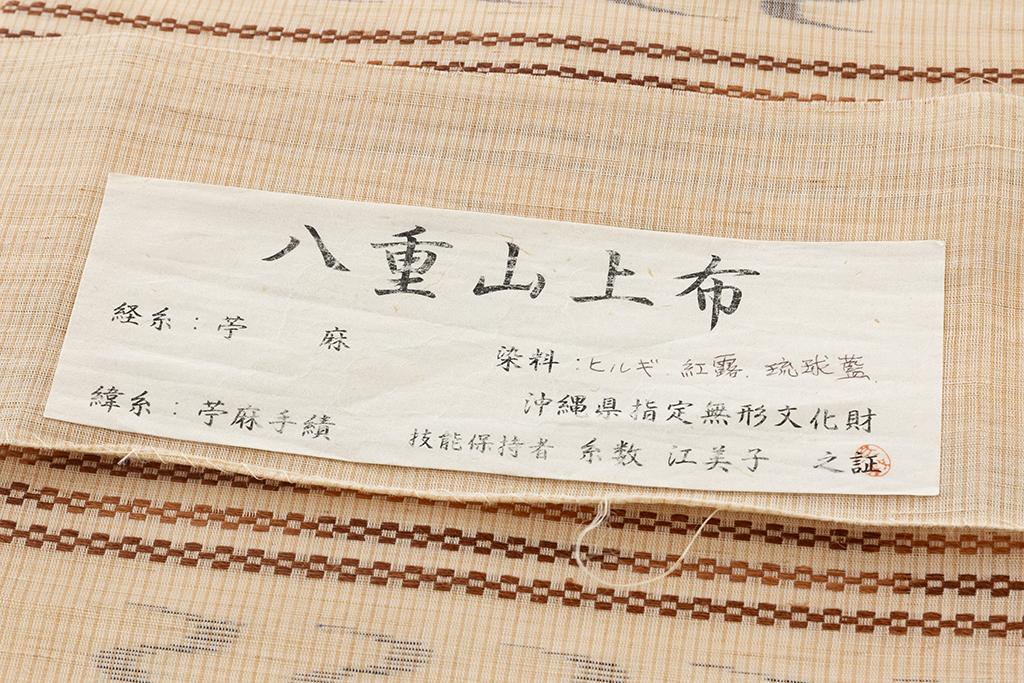 八重山上布
経糸：苧麻
緯糸：苧麻手績
染料：ヒルギ.紅露.琉球藍.
沖縄県指定無形文化財
技能保持者 糸数 江美子 之証